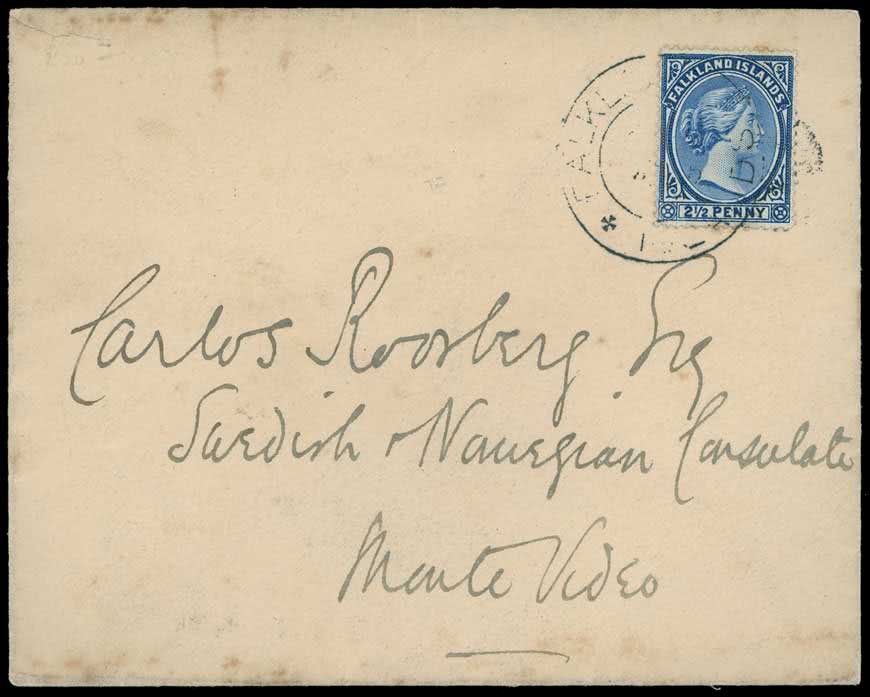 FALKLAND ISLANDS
2½ PENNY
FALKL
Carlos Roosberg Esq
Swedish & Norwegian Consulate
Monte Video